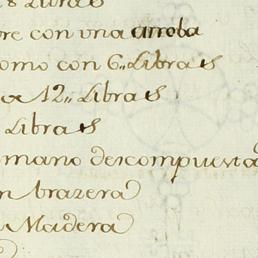 8 Libras
re con una arroba
omo con 6,, Libras
a 12,, Libras
Libras
omano descompuesta
n brazera
Madera